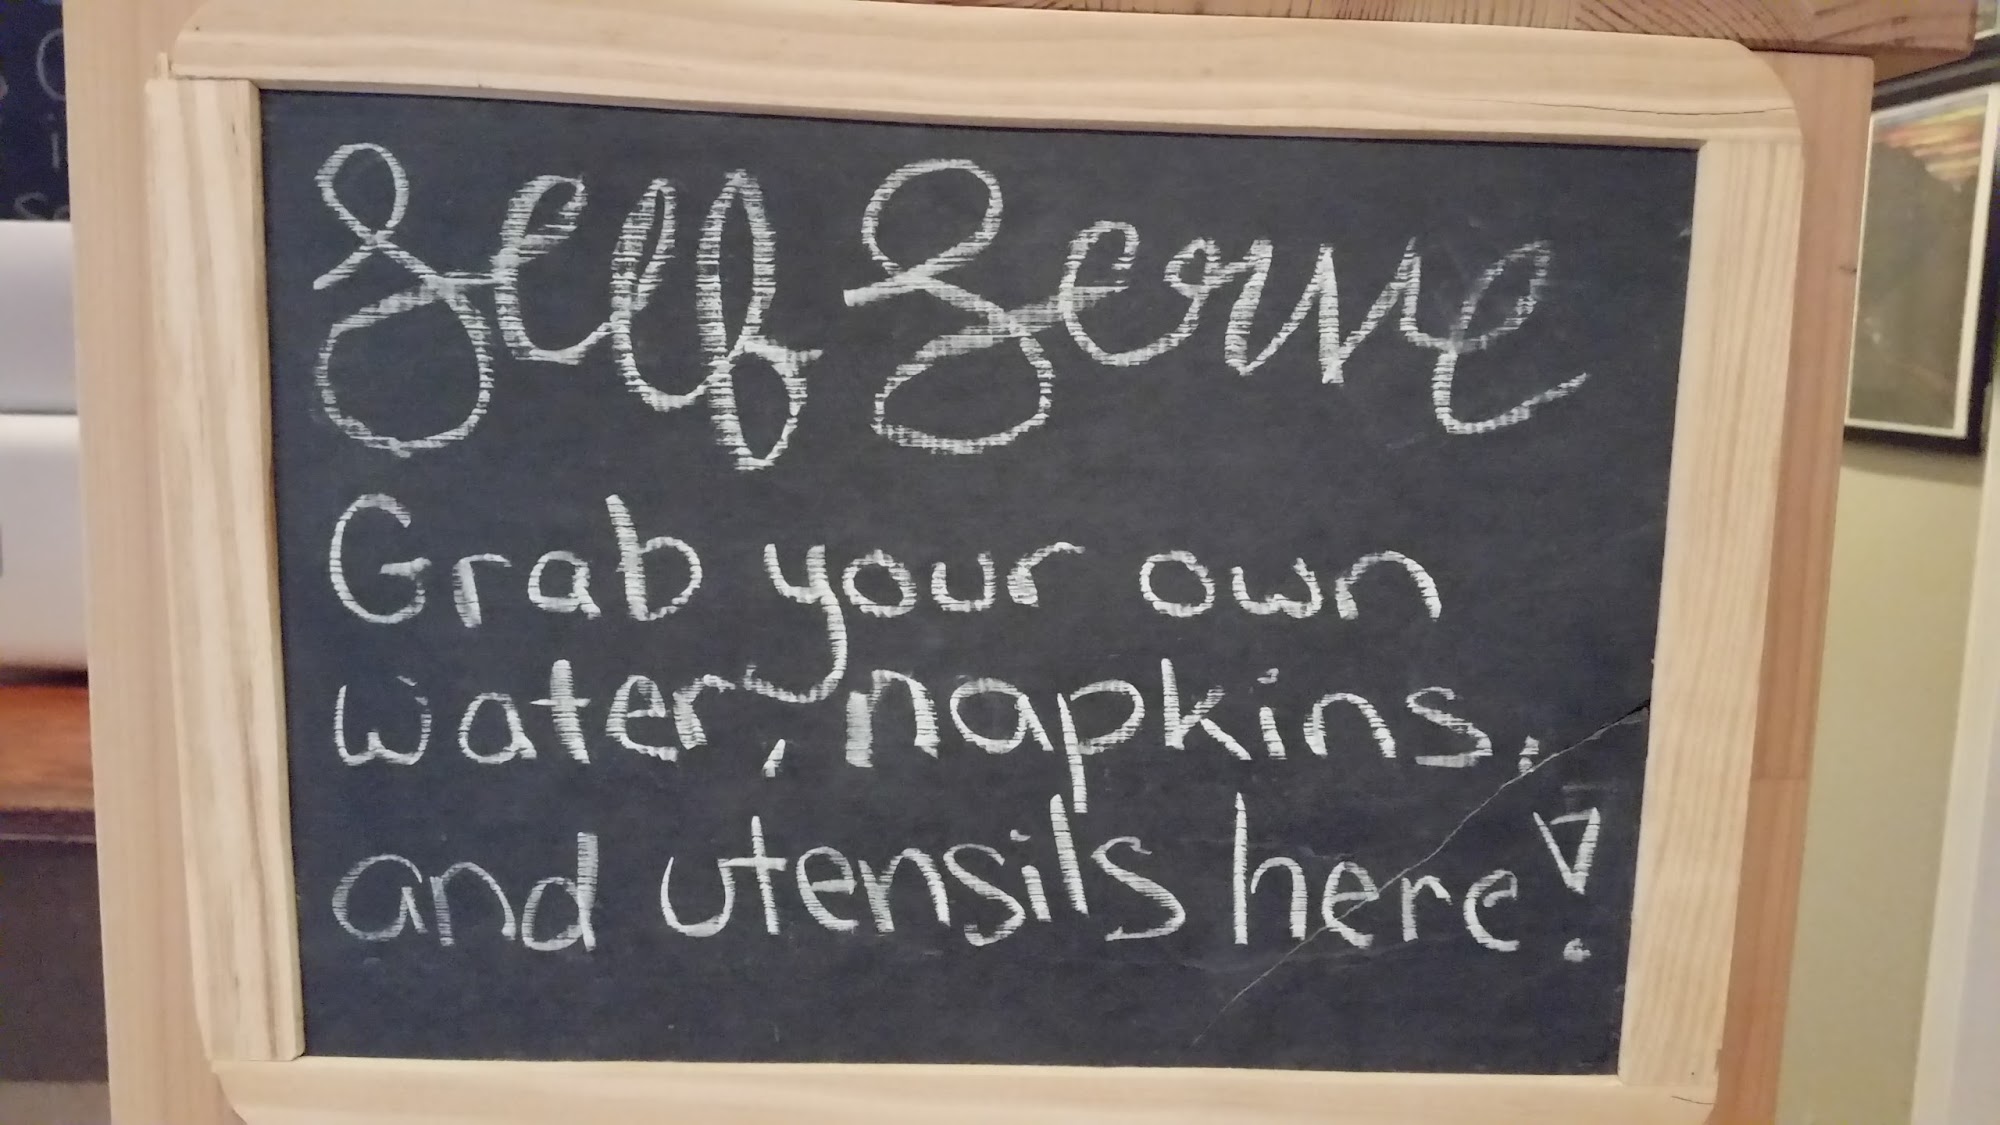 Self Serve
Grab your own
water, napkins,
and utensils here!